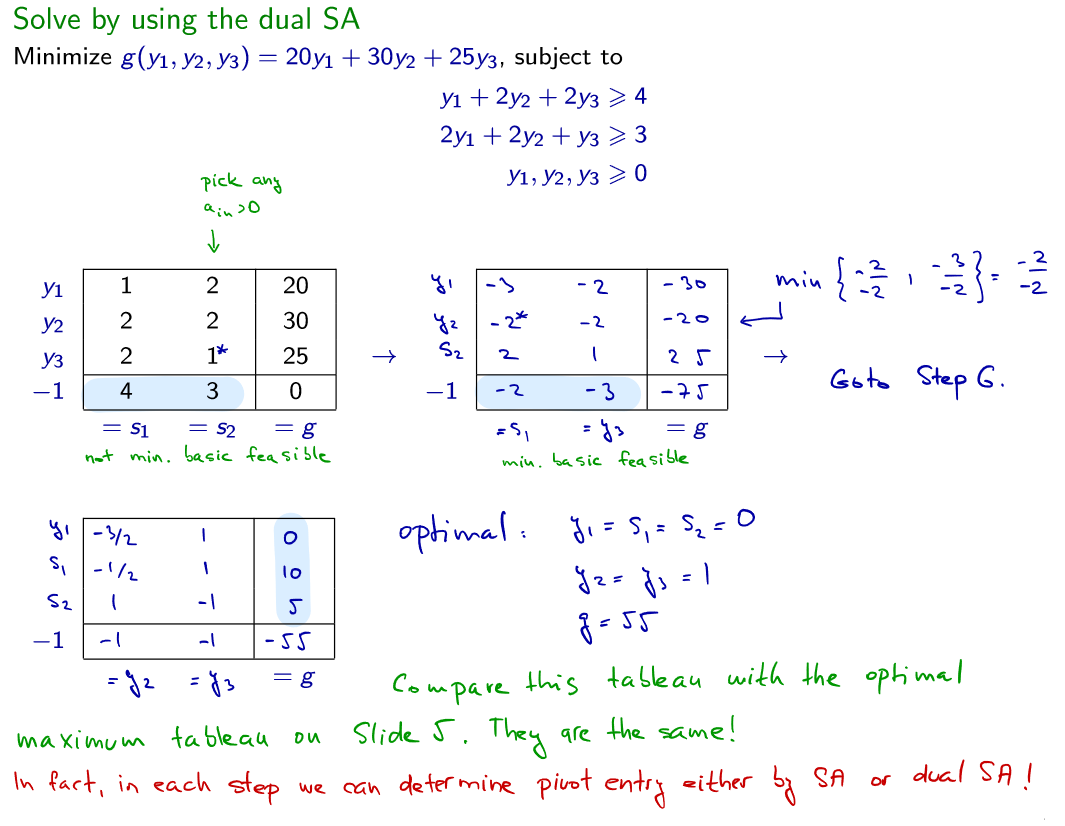 Solve by using the dual SA
Minimize g(y₁, y₂, y₃) = 20y₁ + 30y₂ + 25y₃, subject to
y₁ + 2y₂ + 2y₃ ⩾ 4
2y₁ + 2y₂ + y₃ ⩾ 3
y₁, y₂, y₃ ⩾ 0
pick any
a_in > 0
↓
y₁ 1 2 20
y₂ 2 2 30
y₃ 2 1* 25
−1 4 3 0
= s₁ = s₂ = g
not min. basic feasible
→
y₁ -3 -2 -30
y₂ -2* -2 -20
s₂ 2 1 25
−1 -2 -3 -75
= s₁ = y₃ = g
min. basic feasible
min { -2/-2 , -3/-2 } = -2/-2
→
Goto Step 6.
y₁ -3/2 1 0
s₁ -1/2 1 10
s₂ 1 -1 5
−1 -1 -1 -55
= y₂ = y₃ = g
optimal: y₁ = s₁ = s₂ = 0
y₂ = y₃ = 1
g = 55
Compare this tableau with the optimal
maximum tableau on Slide 5. They are the same!
In fact, in each step we can determine pivot entry either by SA or dual SA!